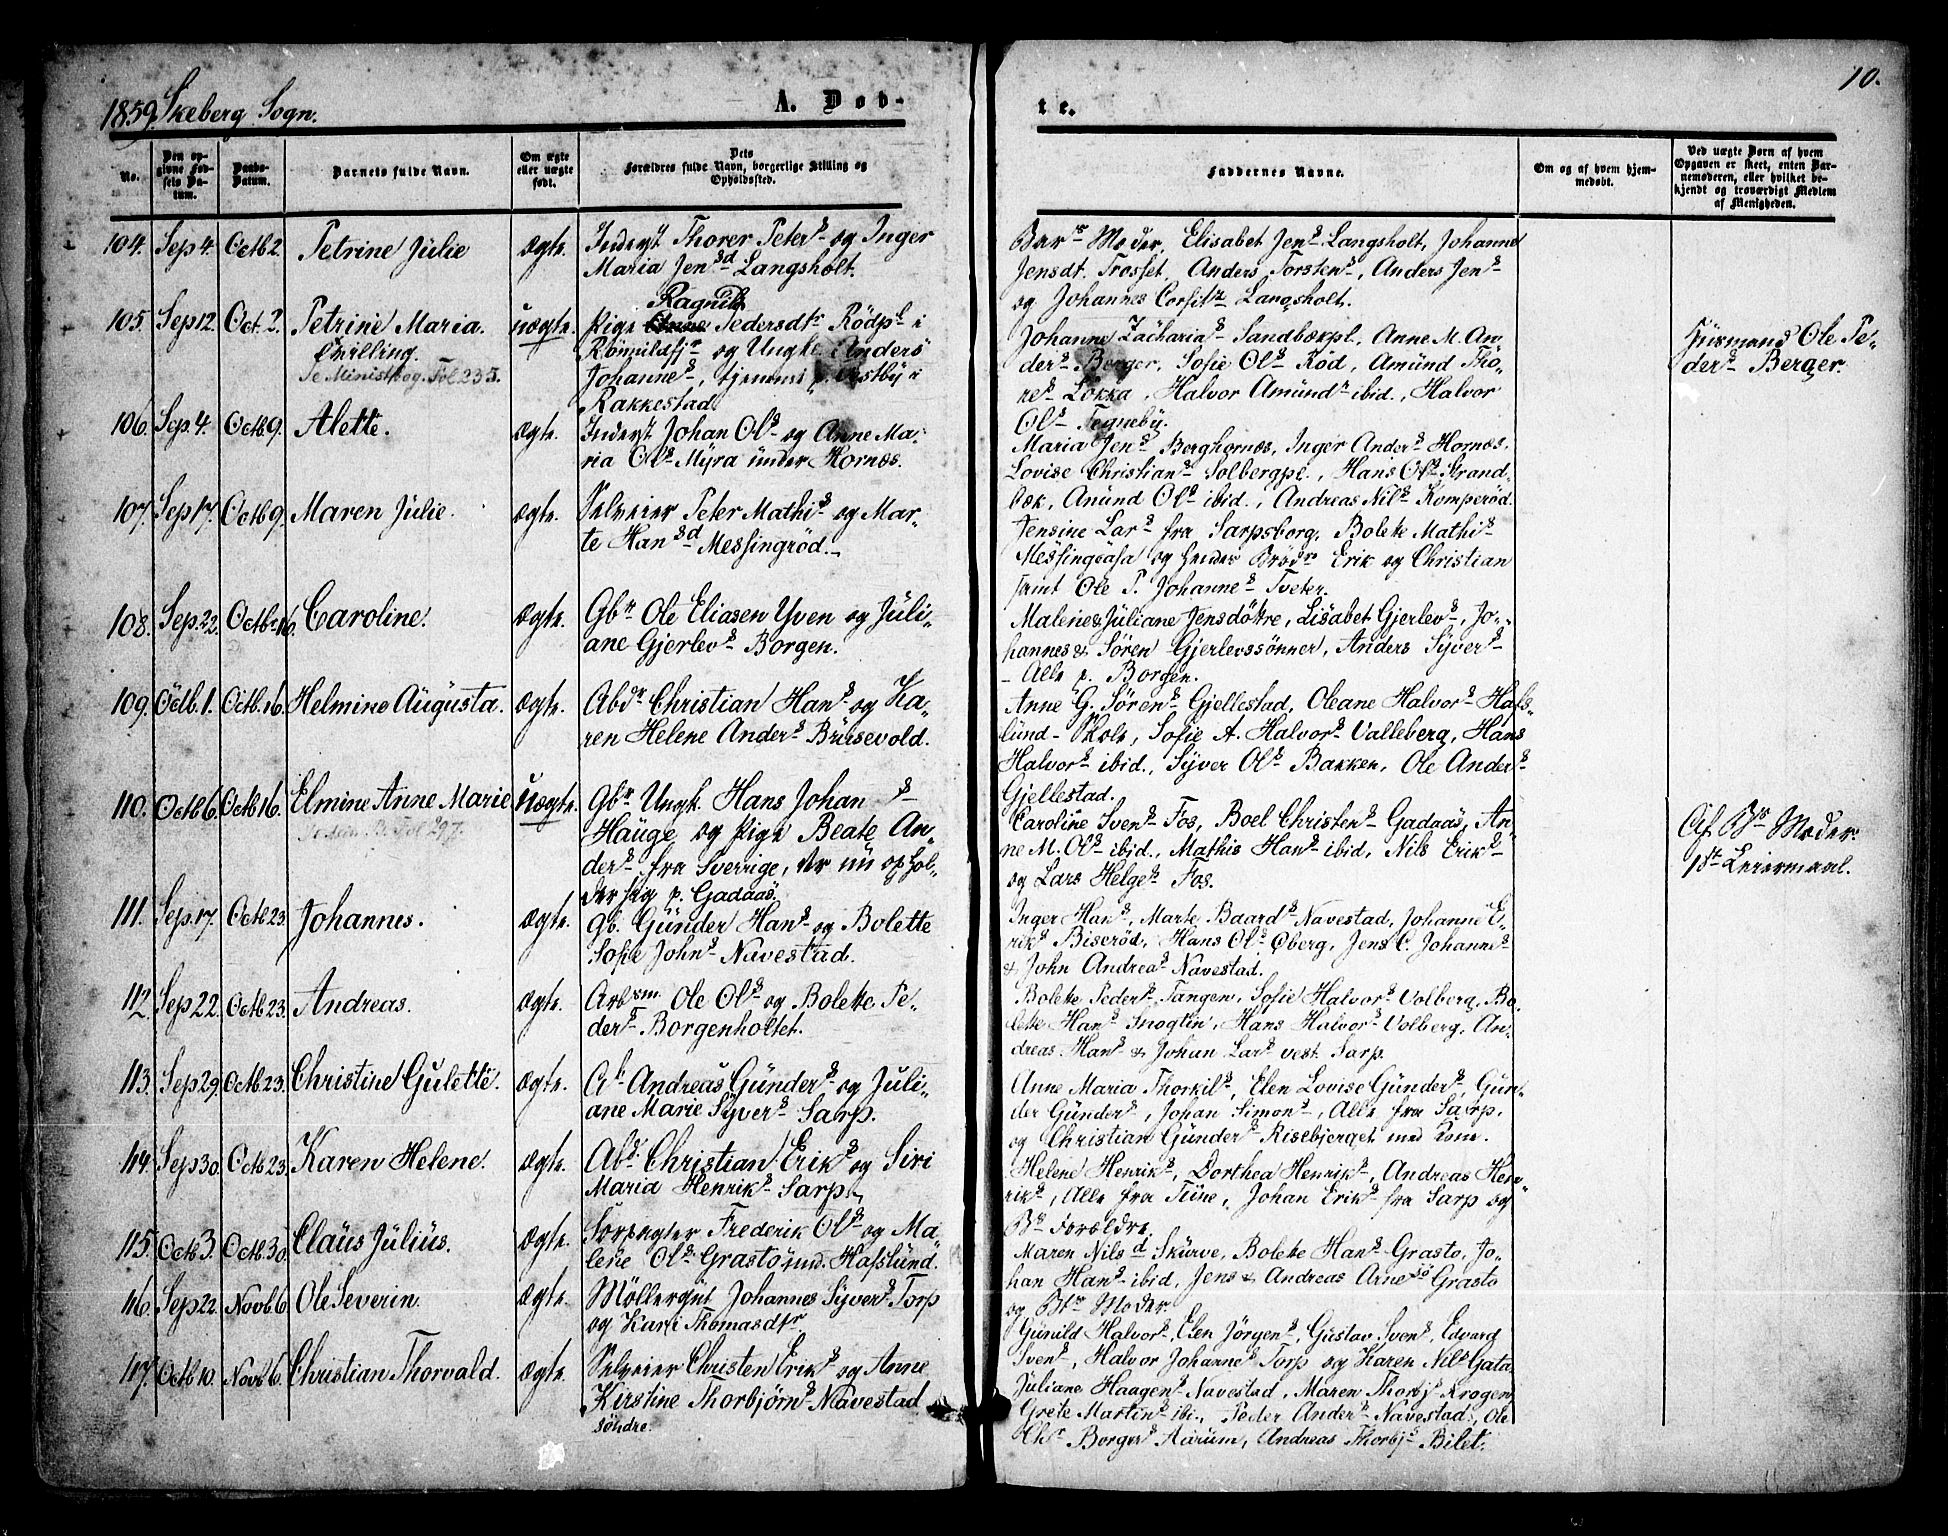 1859. Skeberg Sogn.
A. Døb-
te.
10.
No.
Den op-
givne Fød-
sels Da-
tum.
Daabs-
Datum.
Barnets fulde Navn.
Om ægte
eller uægte
født.
Dets
Forældres fulde Navn, borgerlige Stilling og
Opholdssted.
Faddernes Navne.
Om og af hvem hjem-
medøbt.
Ved uægte Børn af hvem
Opgaven er skeet, enten Bar-
nemoderen, eller hvilket be-
kjendt og troværdigt Medlem
af Menigheden.
104. Sep 4. Octb 2. Petrine Julie ægte. Inderst Thorer Peters. og Inger
Maria Jensd. Langsholt.
Barns Moder, Elisabet Jens. Langsholt, Johanne
Jensdt. Trosset, Anders Torstens., Anders Jens.
og Johannes Langsholt.
105. Sep 12. Oct. 2. Petrine Maria. uægte.
Ragnild
Pige Pedersdtr Rödpl. i
Römuldfj og Ungk. Anders
Johannes., tjenende p. Østby i
Rakkestad
Chilling.
Se Ministbog. Fol 235.
Johanne Zacharias. Sandbækpl., Anne M. An-
ders. Berger, Sofie Ols. Röd, Amünd Tho-
res. Løkka, Halvor Amünds. ibid., Halvor
Ols. Tegneby.
Husmand Ole Pe-
ders. Berger.
106. Sep. 4. Octb. 9. Alette. ægte. Inderst Johan Ols. og Anne Ma-
ria Ols. Myra ünder Hornes.
Maria Jens. Berghornes, Inger Anders. Hornes.
Lovise Christians. Solbergpl., Hans Ols. Strand-
bæk, Amünd Ols. ibid., Andreas Nils. Komperød.
107. Sep 17. Octb 9. Maren Julie. ægte. Selveier Peter Mathis. og Mar-
te Hansd. Messingröd.
Jensine Lars. fra Sarpsborg, Bolette Mathis.
Messingaasa og hendes Brødre Erik og Christian
samt Ole P. Johannes. Tveter.
108. Sep. 22. Octbr 16. Caroline. ægte. Gbr. Ole Eliasen Yven og Juli-
ane Gjerlevs. Borgen.
Malene & Jüliane Jensdøttre, Lisabet Gjerlevs., Jo-
hannes & Sören Gjerlevssönner, Anders Syvers.
Alle p. Borgen.
109. Octb. 1. Octb. 16. Helmine Augüsta. ægte. Abdr Christian Hans. og Ka-
ren Helene Anders. Bürsevold.
Anne G. Sörens. Gjellestad, Oleane Halvors. Hafs-
lünd Skole, Sofie A. Halvors. Valleberg, Hans
Halvors. ibid., Syver Ols. Bakken, Ole Anders.
Gjellestad.
110. Octb 6. Octb 16. Elmine Anne Marie uægte. Gbr. Ungk. Hans Johan s.
Haüge og Pige Beate An-
ders. fra Sverrige, der nü ophol-
der sig p. Gadaas.
Caroline Svens. Fos, Boel Christens. Gadaas, An-
ne M. Ols. ibid., Mathis Hans. ibid, Nils Eriks.
og Lars Helges. Fos.
Af Bs. Moder.
1ste Leiermaal.
111. Sep. 17. Octb 23. Johannes. ægte. Gb. Günder Hans. og Bolette
Sofie Johns. Navestad.
Inger Hans., Marte Baards. Navestad, Johanne E-
riks. Biserød, Hans Ols. Øberg, Jens C. Johannes.
& John Andreas. Navestad.
112. Sep 22. Octb 23. Andreas. ægte. Arbm. Ole Ols. og Bolette Pe-
ders. Borgenholtet.
Bolette Peders. Tangen, Sofie Halvors. Volberg, Bo-
lette Hans. Hans Halvors. Volberg, An-
dreas Hans. & Johan Lars. vest. Sarp.
113. Sep 29. Octb 23. Christine Gulette. ægte. Ab. Andreas Günders. og Juli-
ane Marie Syvers. Sarp.
Anne Maria Thorkils., Elen Lovise Günders., Gun-
der Günders., Johan Simons., Alle fra Sarp,
og Christian Günders. Risebjerget med Kone.
114. Sep 30. Octb 23. Karen Helene. ægte. Abdr. Christian Eriks. og Siri
Maria Henriks. Sarp.
Helene Henriks., Dorthea Henriks., Andreas Hen-
riks., Alle fra Tüne, Johan Eriks. fra Sarp og
Bs. Forældre.
115. Octb 3. Octb. 30. Claüs Jülius. ægte. Forpagter Frederik Ols. og Ma-
lene Ols. Grastö ünd. Hafslünd.
Maren Nilsd. Skürve, Bolette Hans. Grasto, Jo-
han Hans. ibid, Jens & Andreas Arne Grasto
og Bs. Moder.
116. Sep 22. Novb. 6. Ole Severin. ægte. Möllergüt Johannes Syvers. Torp
og Kari Thomasdtr.
Günild Halvors., Elen Jørgens., Güstav Svens., Edvard
Svens., Halvor Johannes. Torp og Karen Nils. Gata
117. Octb 10. Novb 6. Christian Thorvald. ægte. Selveier Christen Eriks. og Anne
Kirstine Thorbjörns. Navestad
söndre.
Juliane Haagens. Navestad, Maren Thorbjs. Krogen,
Grete Martins. ibi., Peder Anders. Navestad, Ole
Chr. Borgers. Aarüm, Andreas Thorbjs. Bilet.